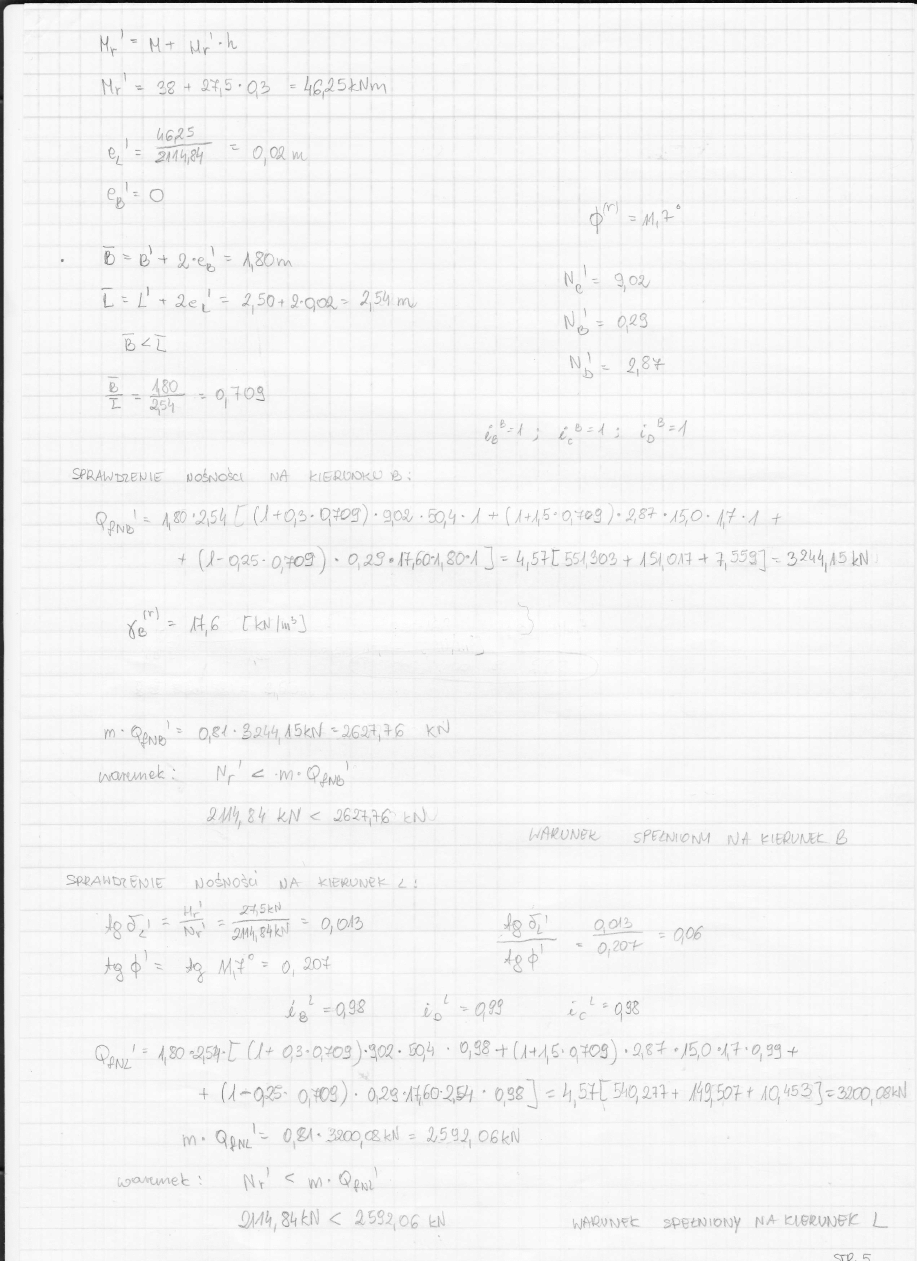 Mr' = M + Hr'·h
Mr' = 38 + 27,5·0,3 = 46,25 kNm
e_L' = 46,25/2114,84 = 0,02 m
e_B' = 0
ϕ^(r) = 11,7°
B̄ = B' + 2·e_B' = 1,80 m
N_c' = 9,02
L̄ = L' + 2e_L' = 2,50 + 2·0,02 = 2,54 m
N_B' = 0,29
B̄ < L̄
N_D' = 2,87
B̄/L̄ = 1,80/2,54 = 0,709
i_B^B = 1 ; i_c^B = 1 ; i_D^B = 1
SPRAWDZENIE NOŚNOŚCI NA KIERUNKU B:
Q_fNB' = 1,80·2,54 [ (1+0,3·0,709)·9,02·50,4·1 + (1+1,5·0,709)·2,87·15,0·1,7·1 +
+ (1-0,25·0,709)·0,29·17,60·1,80·1 ] = 4,57[551,303 + 151,017 + 7,559] = 3244,15 kN
γ_B^(r) = 17,6 [kN/m³]
m·Q_fNB' = 0,81·3244,15kN = 2627,76 kN
warunek: Nr' < m·Q_fNB'
2114,84 kN < 2627,76 kN
WARUNEK SPEŁNIONY NA KIERUNEK B
SPRAWDZENIE NOŚNOŚCI NA KIERUNEK L:
tg δ_L' = Hr'/Nr' = 27,5kN/2114,84kN = 0,013
tg δ_L'/tg ϕ' = 0,013/0,207 = 0,06
tg ϕ' = tg 11,7° = 0,207
i_B^L = 0,98 i_D^L = 0,99 i_C^L = 0,98
Q_fNL' = 1,80·2,54·[ (1+ 0,3·0,709)·9,02·50,4·0,98 + (1+1,5·0,709)·2,87·15,0·1,7·0,99 +
+ (1-0,25·0,709)·0,29·17,60·2,54·0,98 ] = 4,57[540,277 + 149,507 + 10,453] = 3200,08kN
m·Q_fNL' = 0,81·3200,08kN = 2592,06kN
warunek: Nr' < m·Q_fNL'
2114,84kN < 2592,06 kN
WARUNEK SPEŁNIONY NA KIERUNEK L
STR. 5